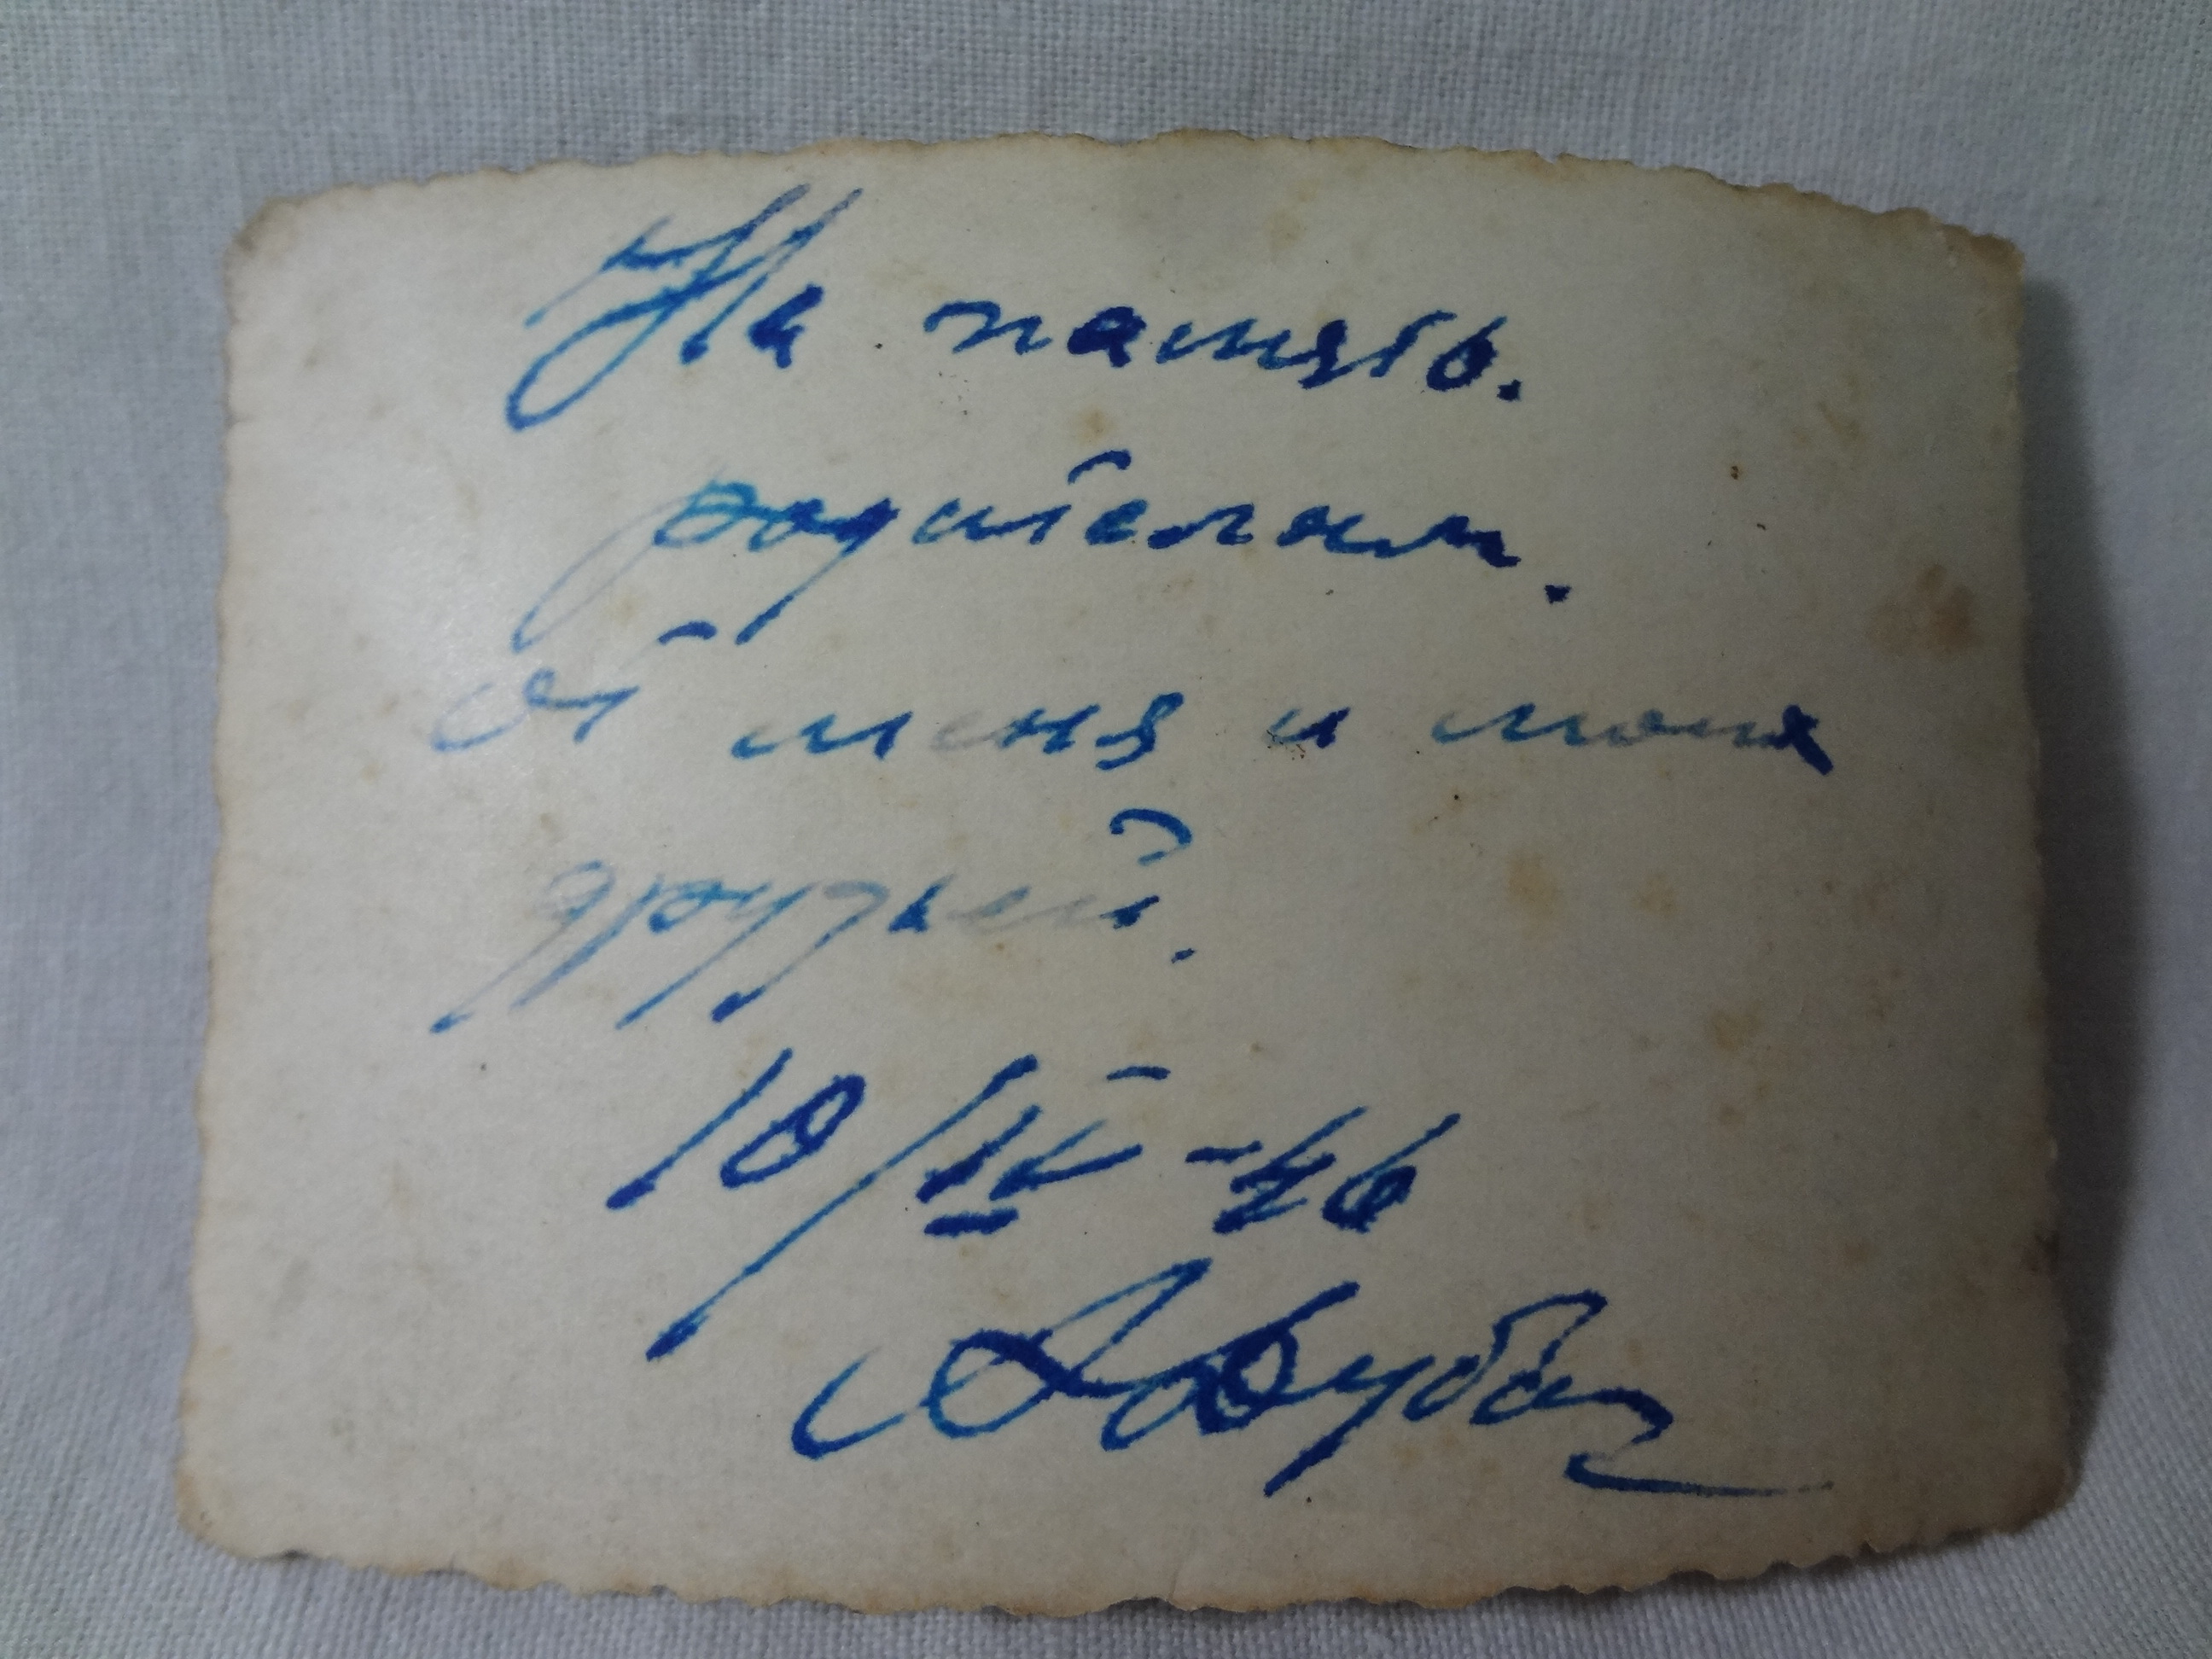 На память.
родителям.
от меня и моих
друзей.
10/IV-46